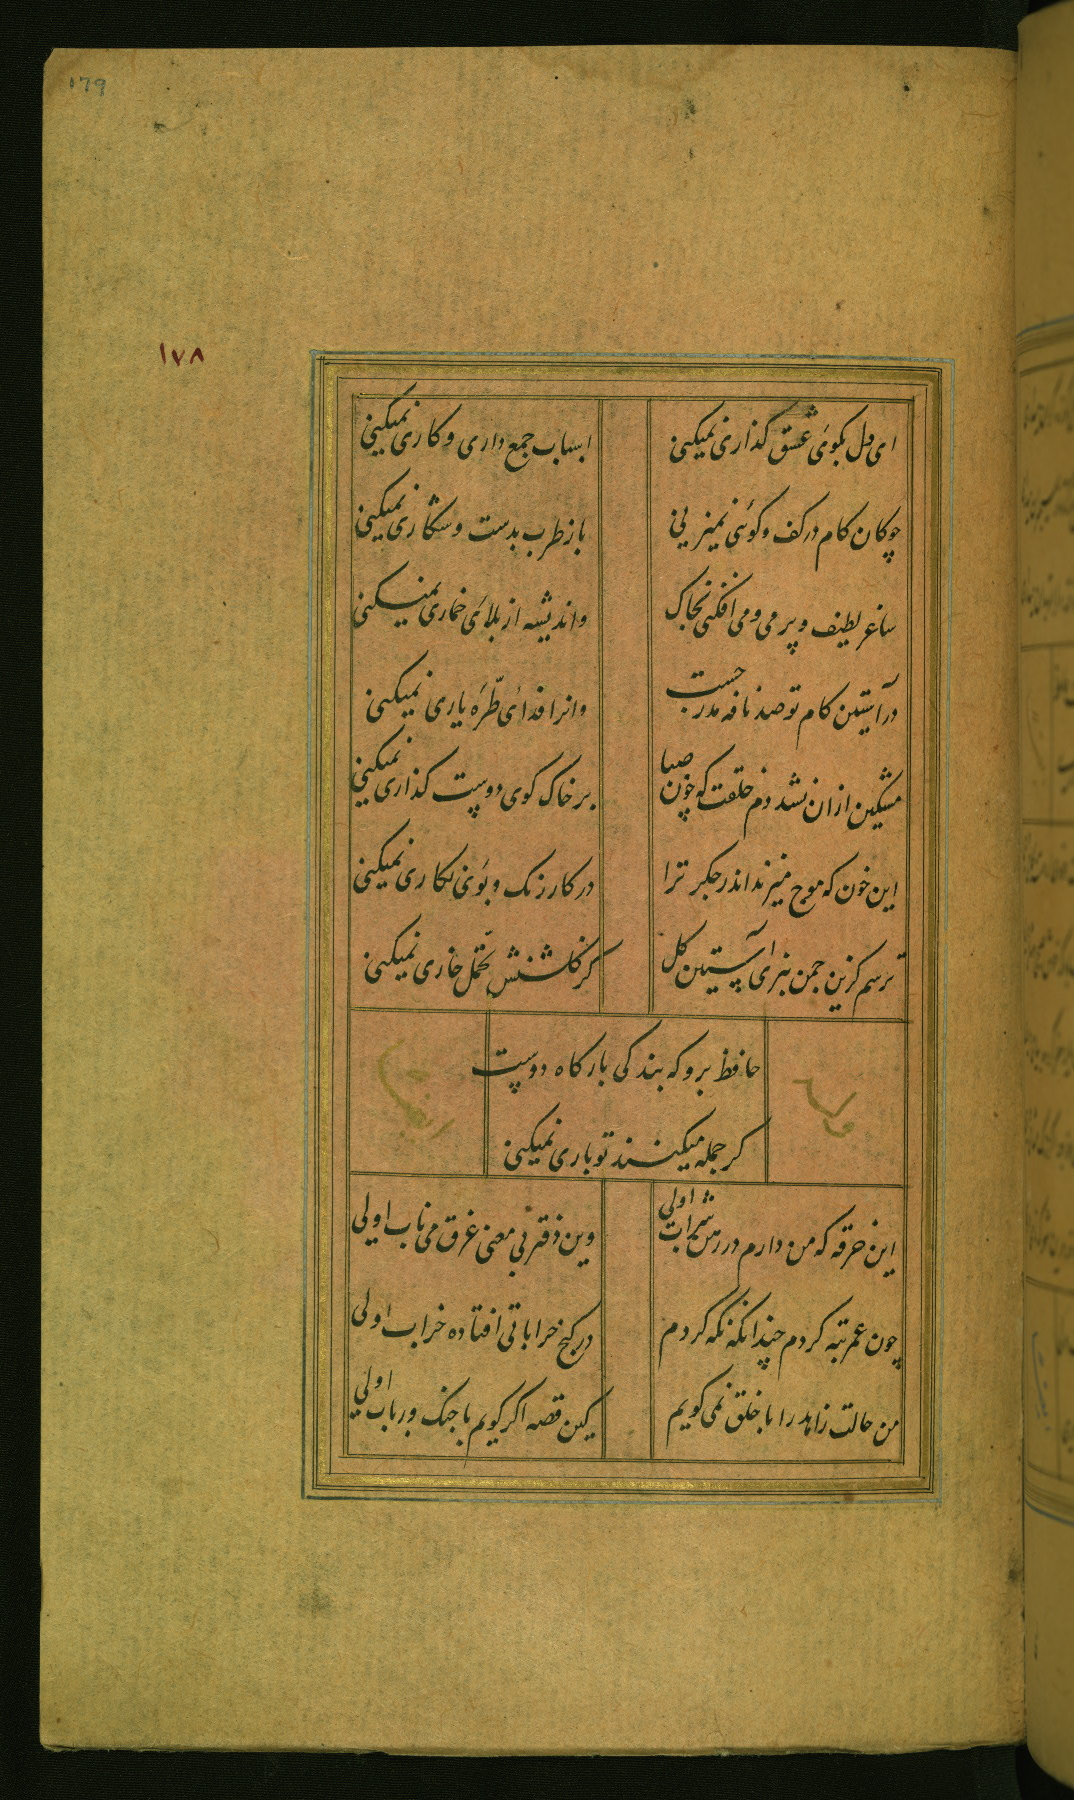 179
١٧٨
ای دل بکوی عشق گذاری نمیکنی
اسباب جمع داری و کاری نمیکنی
چوکان کام در کف و کوئی نمیزنی
باز طرب بدست و شکاری نمیکنی
ساغر لطیف و پر می و می افکنی بخاک
واندیشه از بلای خماری نمیکنی
در آستین کام تو صد نافه مدرجست
وانرا فدای طرّه یاری نمیکنی
مشکین ازان نشد دم خلقت که چون صبا
بر خاک کوی دوست گذاری نمیکنی
این خون که موج میزند اندر جکر ترا
در کار رنک و بوی نکاری نمیکنی
ترسم کزین چمن نبری آستین کل
کز کلشنش تحمل خاری نمیکنی
حافظ برو که بندکی بارکاه دوست
کر جمله میکنند تو باری نمیکنی
وله ایضا
این خرقه که من دارم در رهن شراب اولی
وین دفتر بی معنی غرق می ناب اولی
چون عمر تبه کردم چندانکه نکه کردم
در کنج خراباتی افتاده خراب اولی
من حالت زاهد را با خلق نمی کویم
کین قصه اکر کویم با چنک و رباب اولی